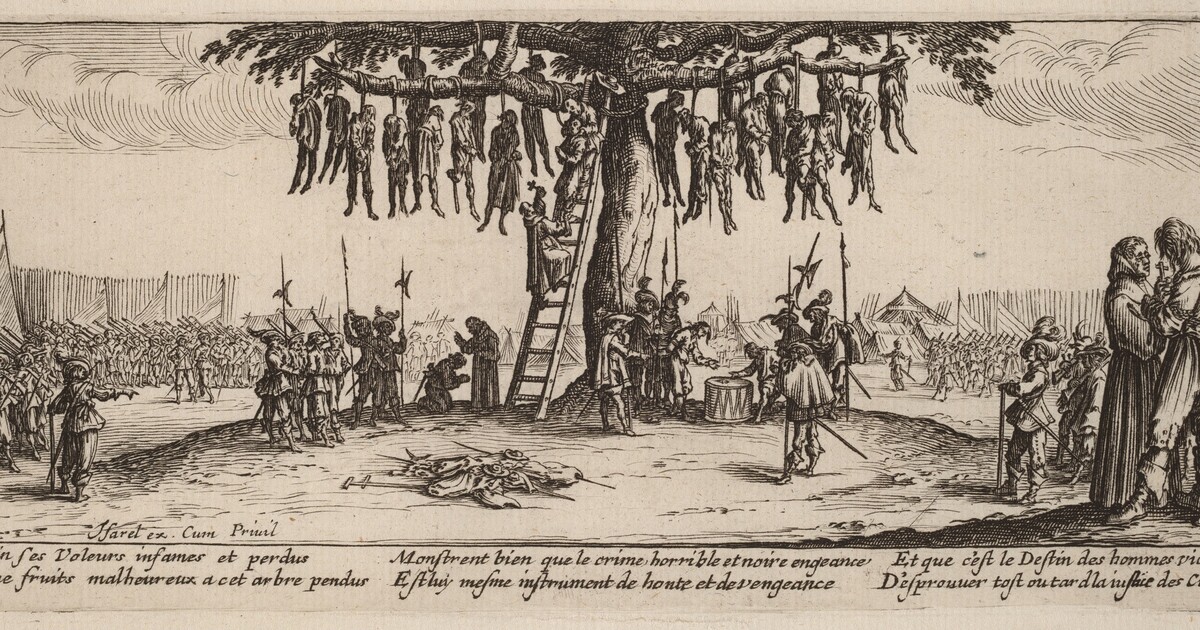 Israel ex. Cum Privil
in ses Voleurs infames et perdus
e fruits malheureux a cet arbre pendus
Monstrent bien que le crime, horrible et noire engeance
Est luy mesme instrument de honte et de vengeance
Et que c'est le Destin des hommes vic
D'esprouver tost ou tard la iustice des C